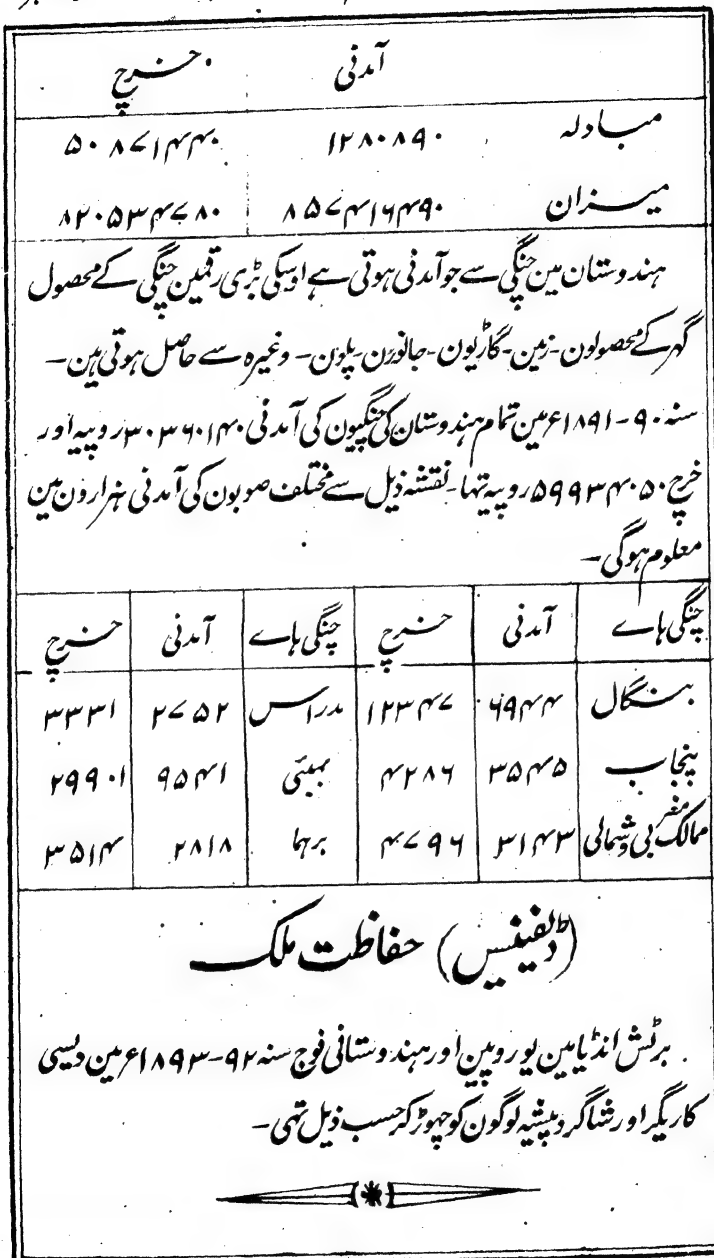 آمدنی خرچ
مبادلہ ۱۲۸۰۸۹۰ ۵۰۸۷۱۴۴۰
میزان ۸۵۷۴۱۶۴۹۰ ۸۲۰۵۳۴۷۸۰
ہندوستان مین چنگی سے جو آمدنی ہوتی ہے اوسکی بڑی رقمین چنگی کے محصول
گہر کے محصولون - زمین - گاڑیون - جانورن - پلون - وغیرہ سے حاصل ہوتی ہین -
سنہ ۹۰ - ۱۸۹۱ع مین تمام ہندوستان کی چنگیون کی آمدنی ۳۰۳۶۰۱۴۰ روپیہ اور
خرچ ۵۹۹۳۴۰۵۰ روپیہ تہا - نقشہ ذیل سے مختلف صوبون کی آمدنی ہزارون مین
معلوم ہوگی -
چنگی ہاے آمدنی خرچ چنگی ہاے آمدنی خرچ
بنگال ۶۹۴۴ ۱۲۳۴۷ مدراس ۲۷۵۲ ۳۳۳۱
پنجاب ۳۵۴۵ ۴۲۸۶ بمبئی ۹۵۴۱ ۲۹۹۰۱
ممالک مغربی و شمالی ۳۱۴۳ ۴۷۹۶ برہما ۲۸۱۸ ۳۵۱۴
(ڈیفینس) حفاظت ملک
برٹش انڈیا مین یوروپین اور ہندوستانی فوج سنہ ۹۲ - ۱۸۹۳ع مین دیسی
کاریگر اور شاگرد پیشہ لوگون کو چہوڑ کر حسب ذیل تہی -